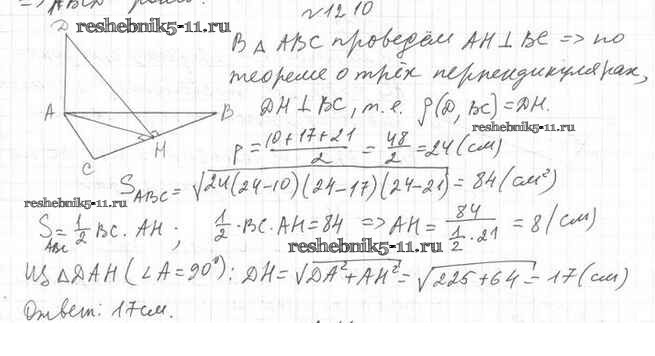 N1210
reshebnik5-11.ru
В △ ABC проведём AH ⊥ BC => по
теореме о трёх перпендикулярах,
DH ⊥ BC, т.е. ρ(D, BC) = DH.
reshebnik5-11.ru
D
A
B
C
H
p = (10+17+21)/2 = 48/2 = 24 (см)
S_ABC = √(24(24-10)(24-17)(24-21)) = 84 (см²)
reshebnik5-11.ru
S_ABC = 1/2 BC · AH ; 1/2 · BC · AH = 84 => AH = 84/(1/2 · 21) = 8 (см)
reshebnik5-11.ru
Из △DAH (∠A = 90°): DH = √(DA² + AH²) = √(225 + 64) = 17 (см)
Ответ: 17 см.